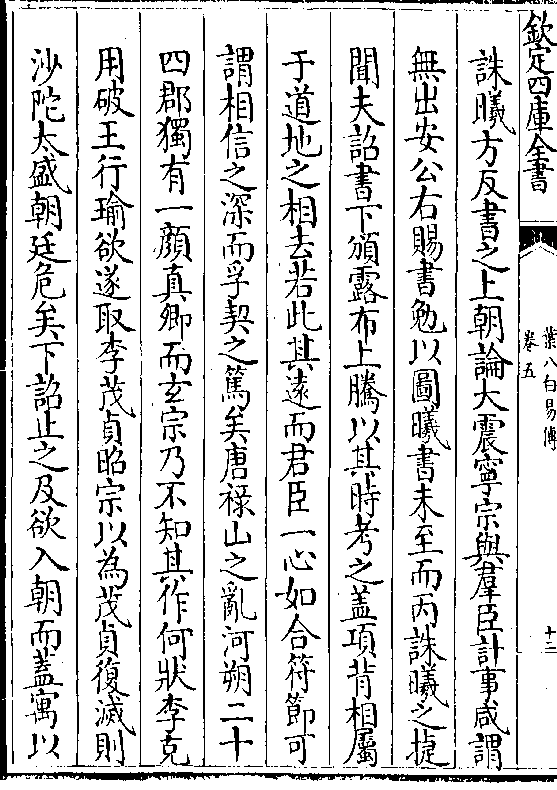 欽定四庫全書
葉八白易傳
卷五
十三
誅曦方反書之上朝論大震寧宗與羣臣計事咸謂
無出安公右賜書勉以圖曦書未至而丙誅曦之捷
聞夫詔書下頒露布上騰以其時考之盖項背相屬
于道地之相去若此其遠而君臣一心如合符節可
謂相信之深而孚契之篤矣唐祿山之亂河朔二十
四郡獨有一顔真卿而玄宗乃不知其作何狀李克
用破王行瑜欲遂取李茂貞昭宗以為茂貞復滅則
沙陀太盛朝廷危矣下詔止之及欲入朝而蓋寓以